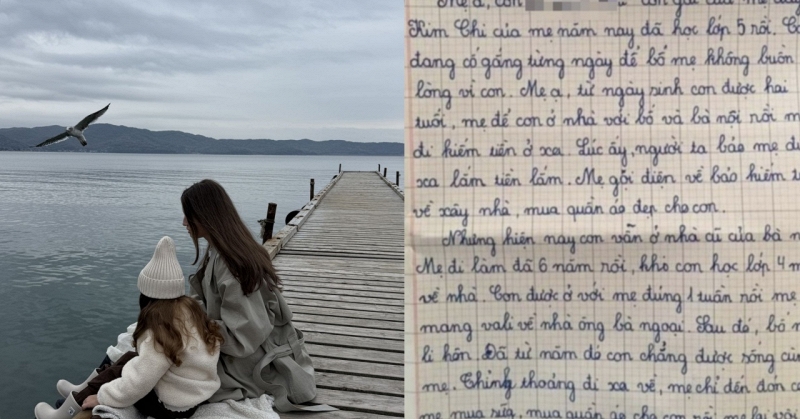 Mẹ ạ, con
Kim Chi của mẹ năm nay đã học lớp 5 rồi. C
đang cố gắng từng ngày để bố mẹ không buồn
lòng vì con. Mẹ ạ, từ ngày sinh con được hai
tuổi, mẹ để con ở nhà với bố và bà nội rồi m
đi kiếm tiền ở xa. Lúc ấy, người ta bảo mẹ đi
xa lắm tiền lắm. Mẹ gọi điện về bảo kiếm t
về xây nhà, mua quần áo đẹp cho con.
Nhưng hiện nay con vẫn ở nhà cũ của bà n
Mẹ đi làm đã 6 năm rồi, khi con học lớp 4 m
về nhà. Con được ở với mẹ đúng 1 tuần rồi mẹ
mang vali về nhà ông bà ngoại. Sau đó, bố m
li hôn. Đã từ năm đó con chẳng được sống cùn
mẹ. Thỉnh thoảng đi xa về, mẹ chỉ đến đón co
mẹ mua sữa, mua quần áo cho con rồi mẹ lại v